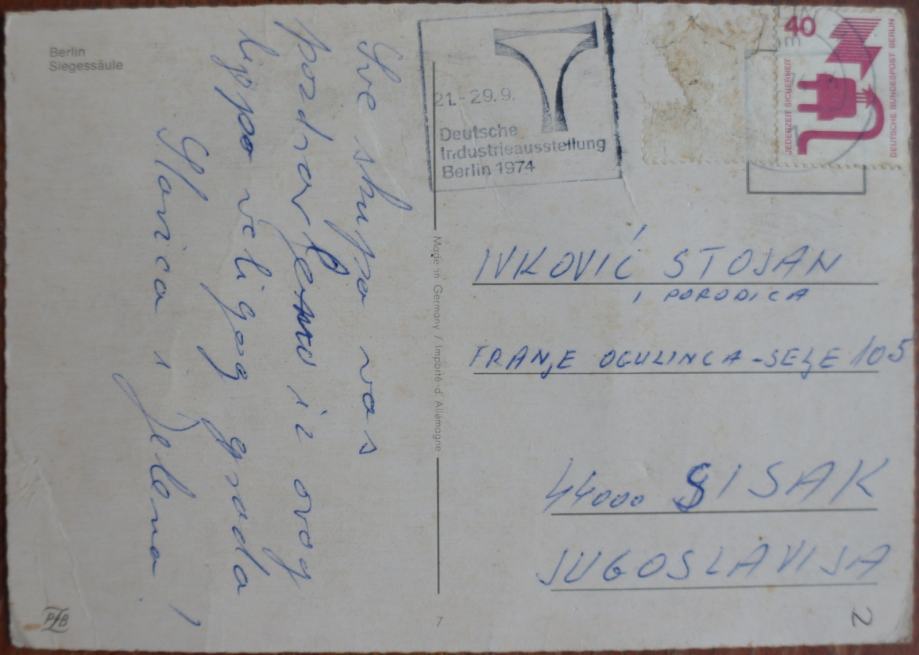 Berlin
Siegessäule
Sve skupa vas
pozdravljamo iz ovog
lijepog velikog grada
Slavica i Jelena!
21.-29.9.
Deutsche
Industrieausstellung
Berlin 1974
40
JEDERZEIT SICHERHEIT
DEUTSCHE BUNDESPOST BERLIN
Made in Germany / Importé d'Allemagne
IVKOVIĆ STOJAN
I PORODICA
FRANJE OGULINCA-SELJE 105
44000 SISAK
JUGOSLAVIJA
PZB
7
2